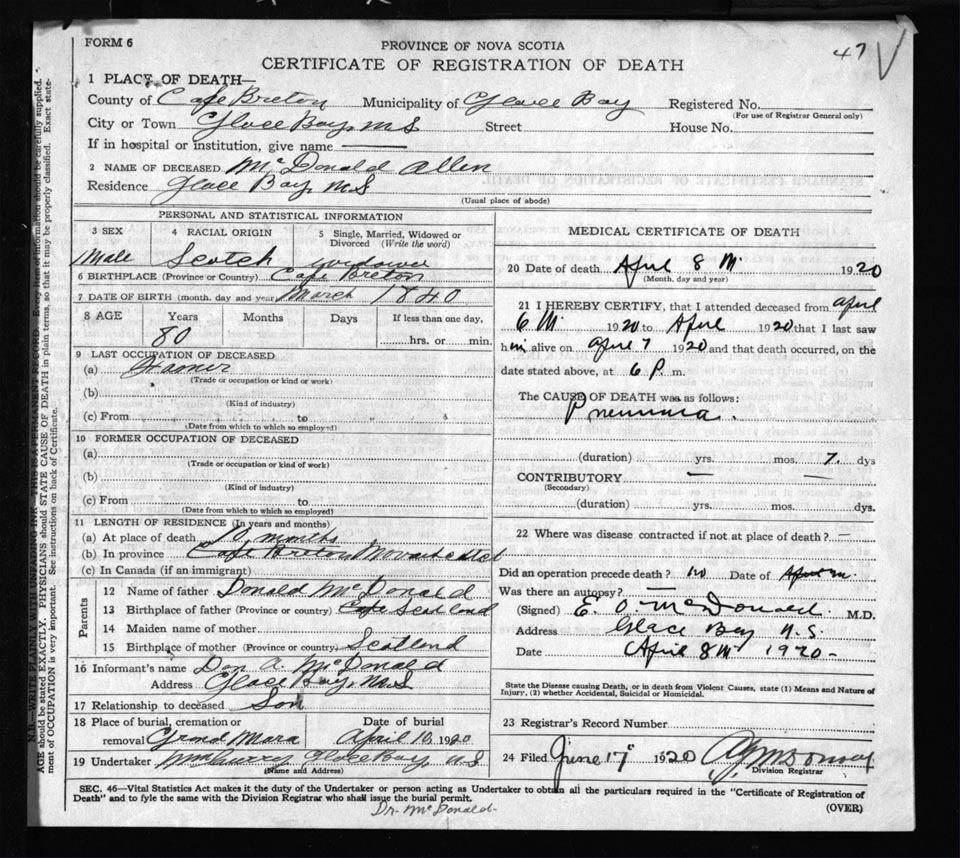 FORM 6
PROVINCE OF NOVA SCOTIA
47
CERTIFICATE OF REGISTRATION OF DEATH
1 PLACE OF DEATH—
County of Cape Breton Municipality of Glace Bay Registered No.
(For use of Registrar General only)
City or Town Glace Bay, N S Street House No.
If in hospital or institution, give name
2 NAME OF DECEASED McDonald Allen
Residence Glace Bay, N S
(Usual place of abode)
PERSONAL AND STATISTICAL INFORMATION
3 SEX
4 RACIAL ORIGIN
5 Single, Married, Widowed or
Divorced (Write the word)
Male Scotch widower
6 BIRTHPLACE (Province or Country) Cape Breton
7 DATE OF BIRTH (month, day and year) March 1840
8 AGE Years Months Days If less than one day,
80
hrs. or min.
9 LAST OCCUPATION OF DECEASED
(a) Farmer
(Trade or occupation or kind or work)
(b)
(Kind of industry)
(c) From to
(Date from which to which so employed)
10 FORMER OCCUPATION OF DECEASED
(a)
(Trade or occupation or kind of work)
(b)
(Kind of industry)
(c) From to
(Date from which to which so employed)
11 LENGTH OF RESIDENCE (In years and months)
(a) At place of death months
(b) In province Cape Breton
(c) In Canada (if an immigrant)
Parents
12 Name of father Donald McDonald
13 Birthplace of father (Province or country) Scotland
14 Maiden name of mother
15 Birthplace of mother (Province or country) Scotland
16 Informant's name Dan A. McDonald
Address Glace Bay, N S
17 Relationship to deceased Son
18 Place of burial, cremation or
removal Grand Mira
Date of burial
April 10, 1920
19 Undertaker Glace Bay, N S
(Name and Address)
MEDICAL CERTIFICATE OF DEATH
20 Date of death April 8 1920
(Month, day and year)
21 I HEREBY CERTIFY, that I attended deceased from April
6 1920 to April 1920 that I last saw
him alive on April 7 1920 and that death occurred, on the
date stated above, at 6 P. m.
The CAUSE OF DEATH was as follows:
Pneumonia.
(duration) yrs. mos. 7. dys
CONTRIBUTORY
(Secondary)
(duration) yrs. mos. dys.
22 Where was disease contracted if not at place of death?
Did an operation precede death? no Date of
Was there an autopsy?
(Signed) E. O. McDonald. M.D.
Address Glace Bay N.S.
Date April 8 1920
State the Disease causing Death, or in death from Violent Causes, state (1) Means and Nature of
Injury, (2) whether Accidental, Suicidal or Homicidal.
23 Registrar's Record Number
24 Filed June 17 1920
Division Registrar
SEC. 46—Vital Statistics Act makes it the duty of the Undertaker or person acting as Undertaker to obtain all the particulars required in the "Certificate of Registration of
Death" and to fyle the same with the Division Registrar who shall issue the burial permit.
(OVER)
Dr. McDonald
N.B.—WRITE PLAINLY WITH UNFADING INK—THIS IS A PERMANENT RECORD. Every item of information should be carefully supplied.
AGE should be stated EXACTLY. PHYSICIANS should STATE CAUSE OF DEATH in plain terms, so that it may be properly classified. Exact state-
ment of OCCUPATION is very important. See instructions on back of Certificate.